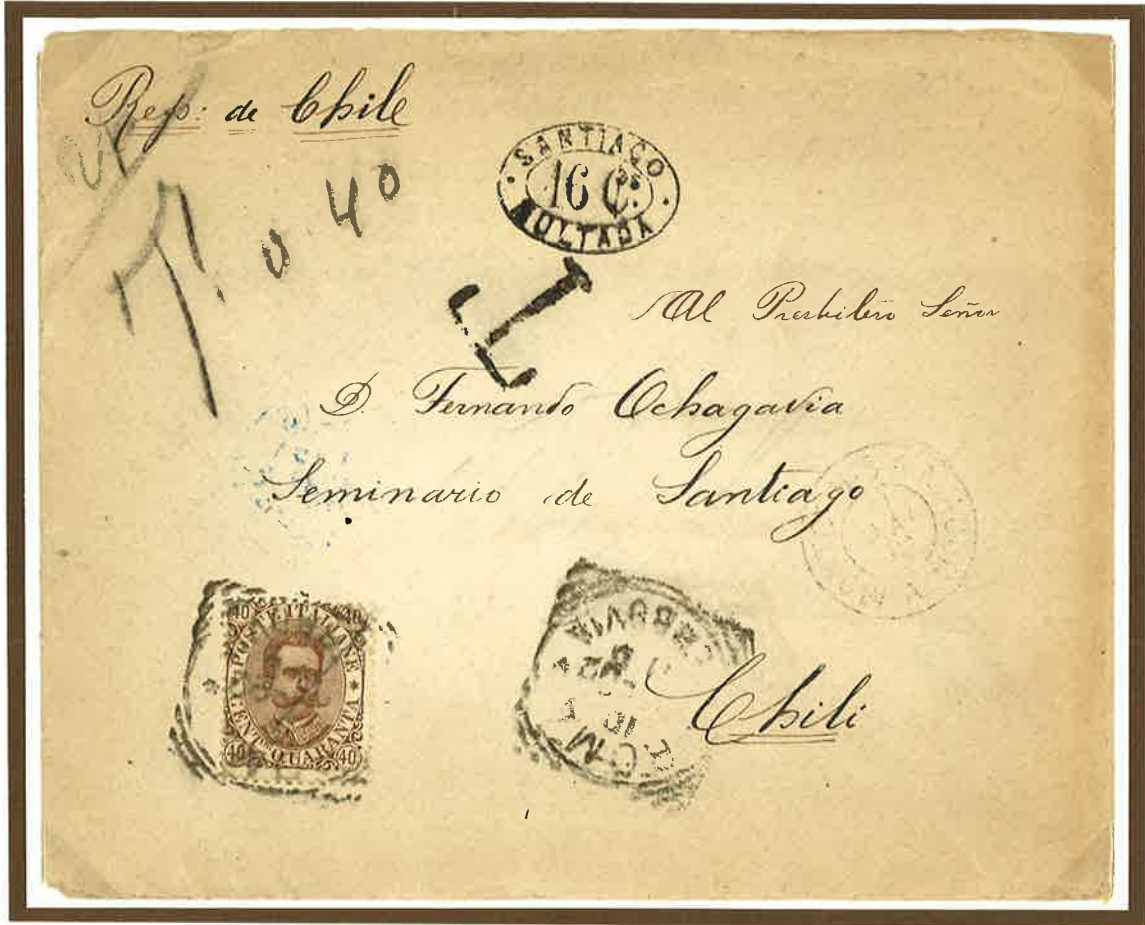 Rep: de Chile
T. 0 40
SANTIAGO
16 Cos.
MULTADA
T
Al Presbitero Señor
D. Fernando Ochagavia
Seminario de Santiago
Chili
40 40
POSTE ITALIANE
CENT. QUARANTA
40 40
ROMA
FERROVIA